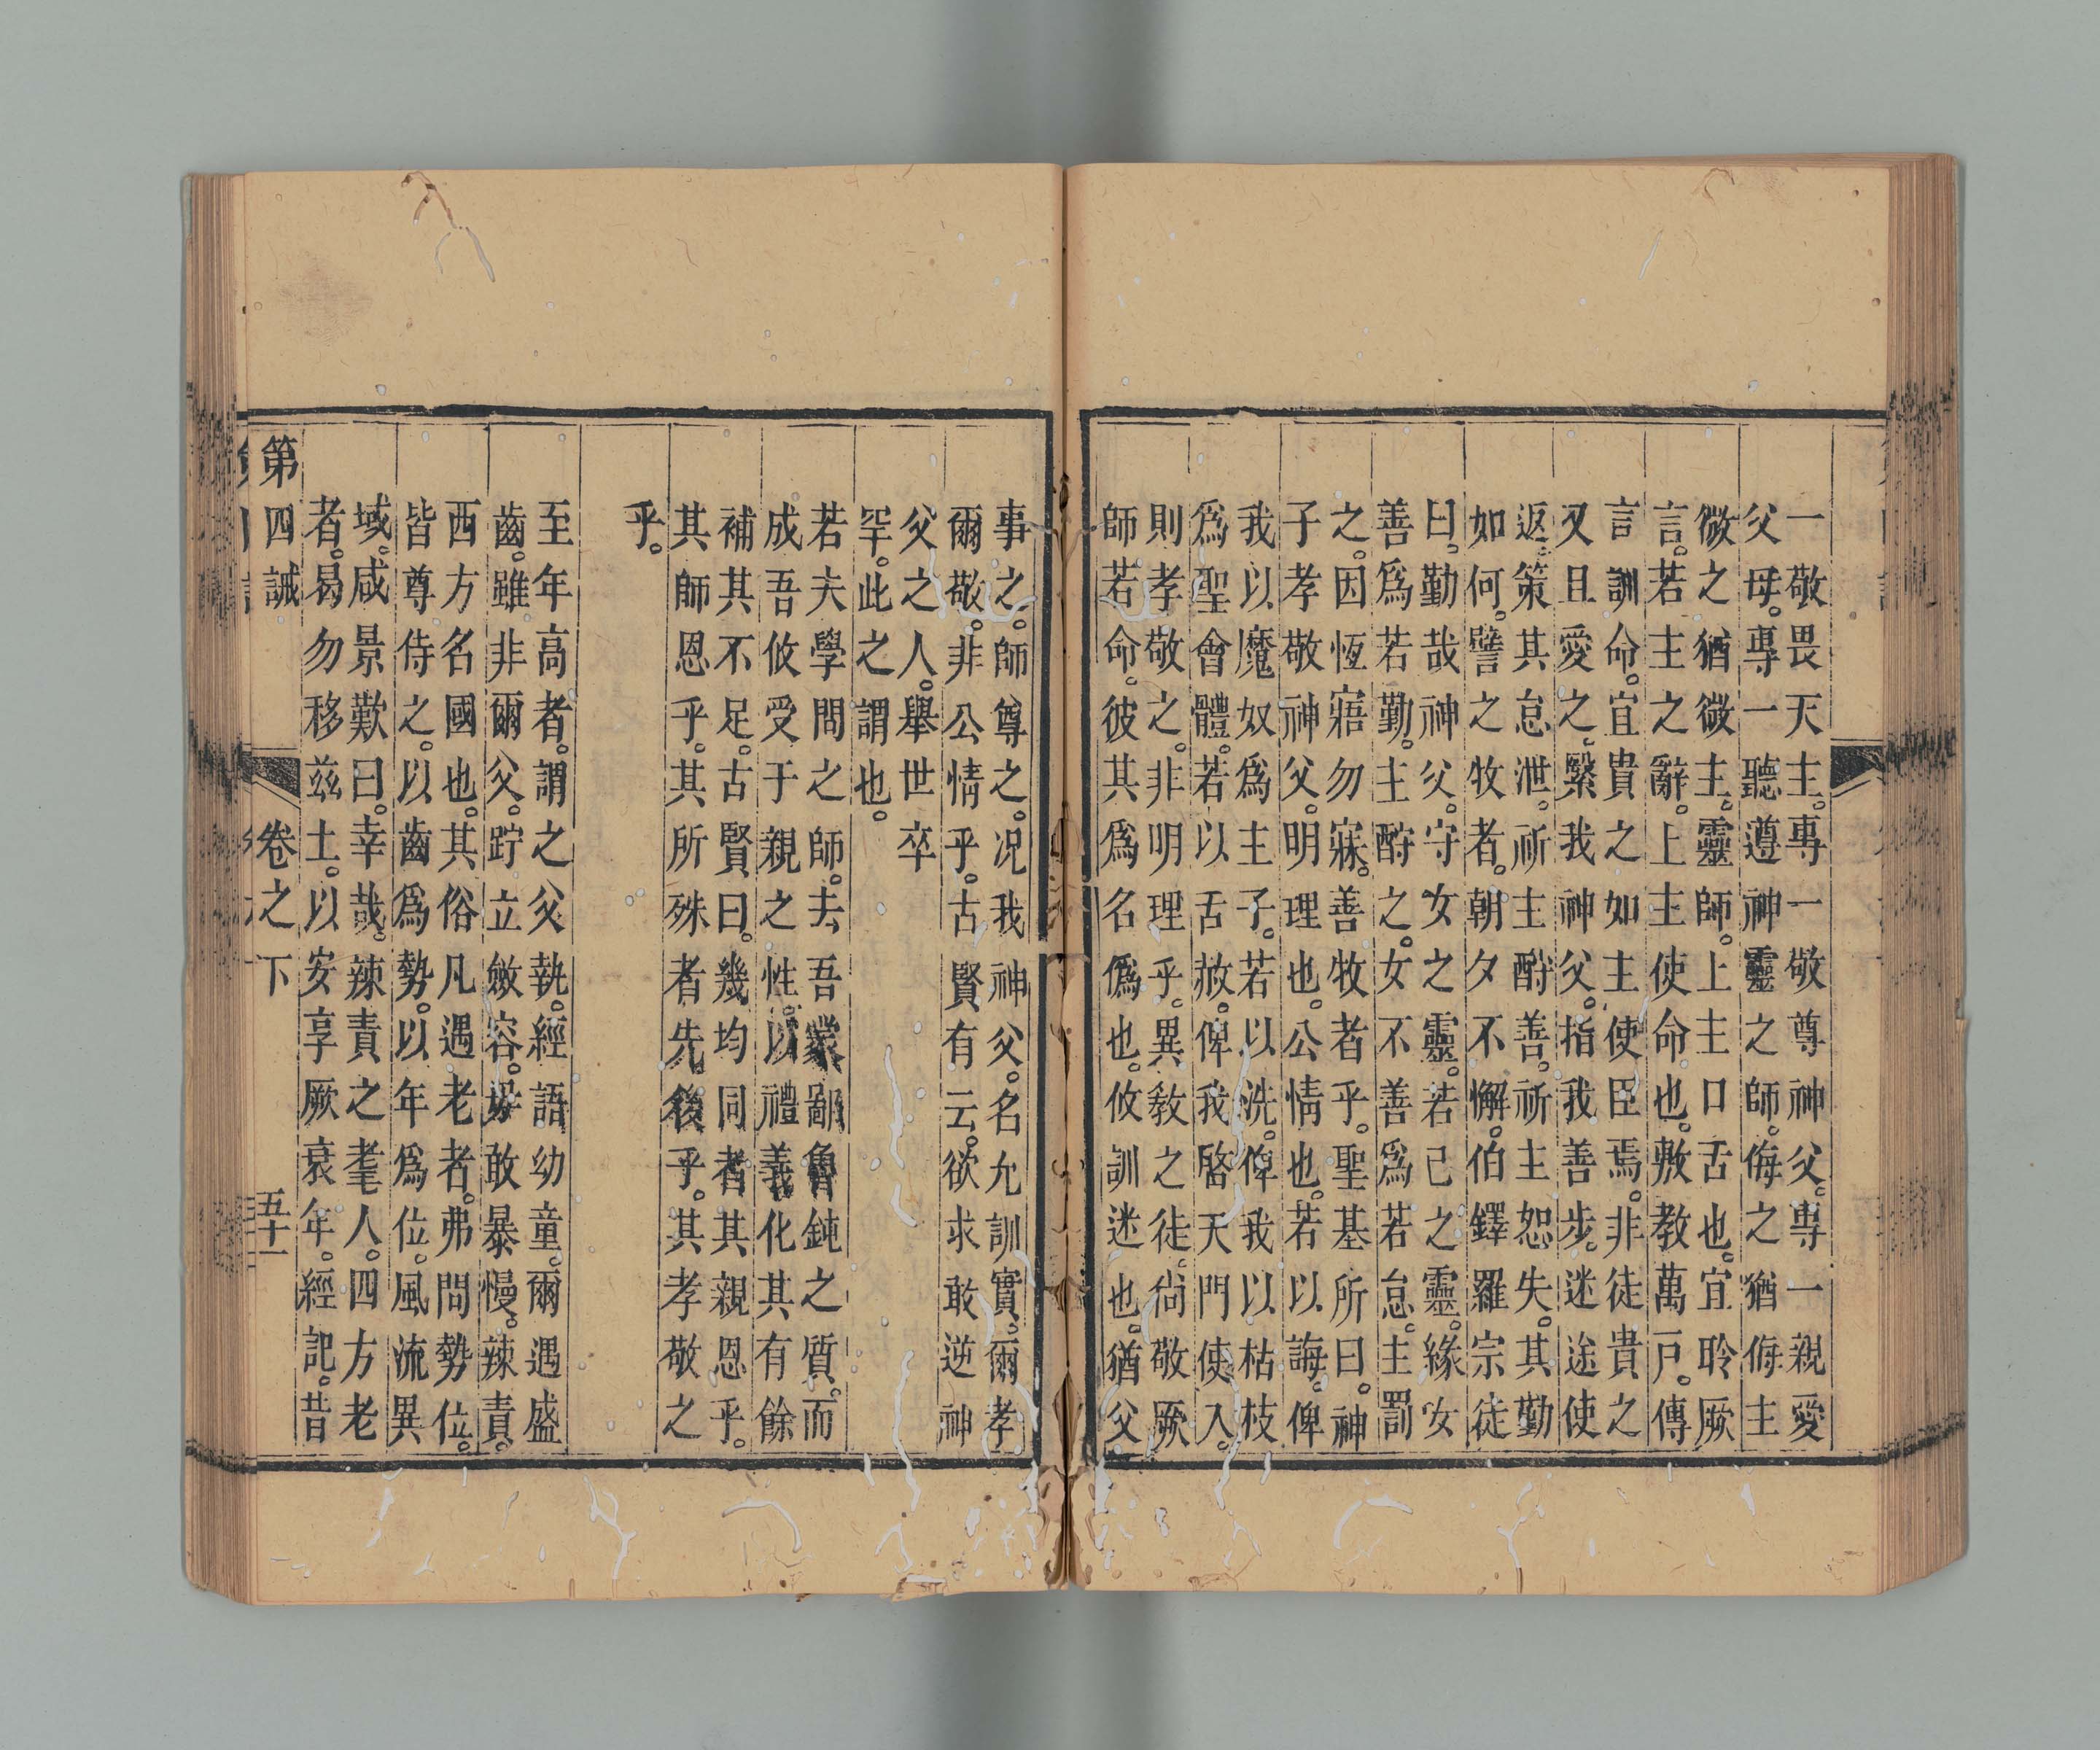 一敬畏天主。專一敬尊神父。專一親愛
父母。專一聽遵神靈之師。侮之猶侮主
微之猶微主。靈師。上主口舌也。宜聆厥
言。若主之辭。上主使命也。敷教萬戸。傳
言訓命。宜貴之如主使臣焉。非徒貴之
又且愛之。繄我神父。指我善步。迷途使
返。策其怠泄。祈主酧善。祈主恕失。其勤
如何。譬之牧者。朝夕不懈。伯鐸羅宗徒
曰。勤哉神父。守女之靈。若己之靈。緣女
善爲若勤。主酧之。女不善爲若怠。主罰
之。因恆寤勿寐。善牧者乎。聖基所曰。神
子孝敬神父。明理也。公情也。若以誨。俾
我以魔奴爲主子。若以洗。俾我以枯枝
爲聖會體。若以舌赦。俾我啓天門使入。
則孝敬之。非明理乎。異教之徒。尚敬厥
師若命。彼其爲名僞也。攸訓迷也。猶父
事之。師尊之。况我神父。名允訓實。爾孝
爾敬。非公情乎。古賢有云。欲求敢逆神
父之人。舉世卒
罕。此之謂也。
若夫學問之師。去吾蒙鄙魯鈍之質。而
成吾攸受于親之性。以禮義化其有餘
補其不足。古賢曰。幾均同者其親恩乎。
其師恩乎。其所殊者先後乎。其孝敬之
乎。
至年高者。謂之父執。經語幼童。爾遇盛
齒。雖非爾父。跧立斂容。毋敢暴慢。辣責。
西方名國也。其俗凡遇老者。弗問勢位。
皆尊侍之。以齒爲勢。以年爲位。風流異
域。咸景歎曰。幸哉。辣責之耄人。四方老
者。曷勿移兹土。以安享厥衰年。經記。昔
第四誡 卷之下 五十一